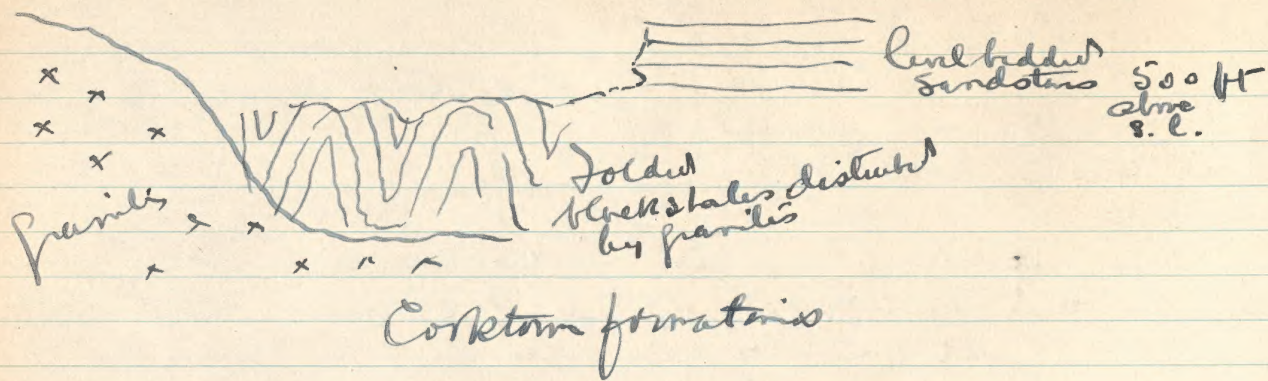 level bedded
sandstones 500 ft
above
s. l.
Folded
black shales disturbed
by granites
granites
Cooktown formations